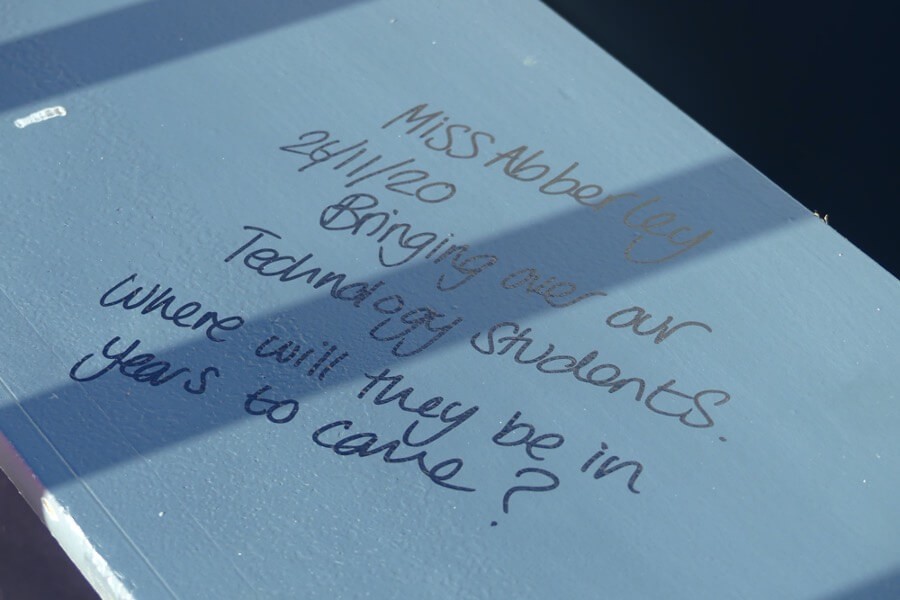 Miss Abberley
24/11/20
Bringing over our
Technology students.
Where will they be in
years to come?